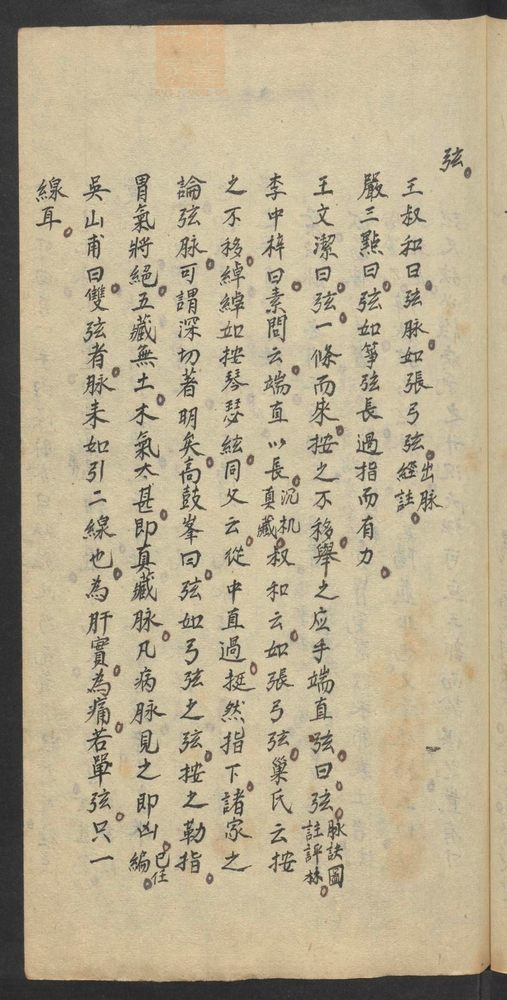 弦
王叔和曰弦脉如張弓弦出脉經註
嚴三點曰弦如箏弦長過指而有力
王文潔曰弦一條而來按之不移舉之应手端直弦曰弦脉訣圖註評林
李中梓曰素問云端直以長玉机真藏叔和云如張弓弦巢氏云按
之不移綽綽如按琴瑟絃同父云從中直過挺然指下諸家之
論弦脉可謂深切著明矣高鼓峯曰弦如弓弦之弦按之勒指
胃氣將絕五藏無土木氣太甚即真藏脉凡病脉見之即凶已任編
吳山甫曰雙弦者脉來如引二線也為肝實為痛若單弦只一
線耳